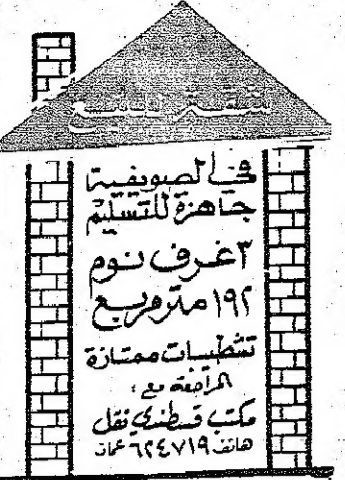 شقة للبيع
في الصويفية
جاهزة للتسليم
٣ غرف نوم
١٩٢ متر مربع
تشطيبات ممتازة
المراجعة مع :
مكتب قسطندي نقل
هاتف ٦٢٤٧١٩ عمان